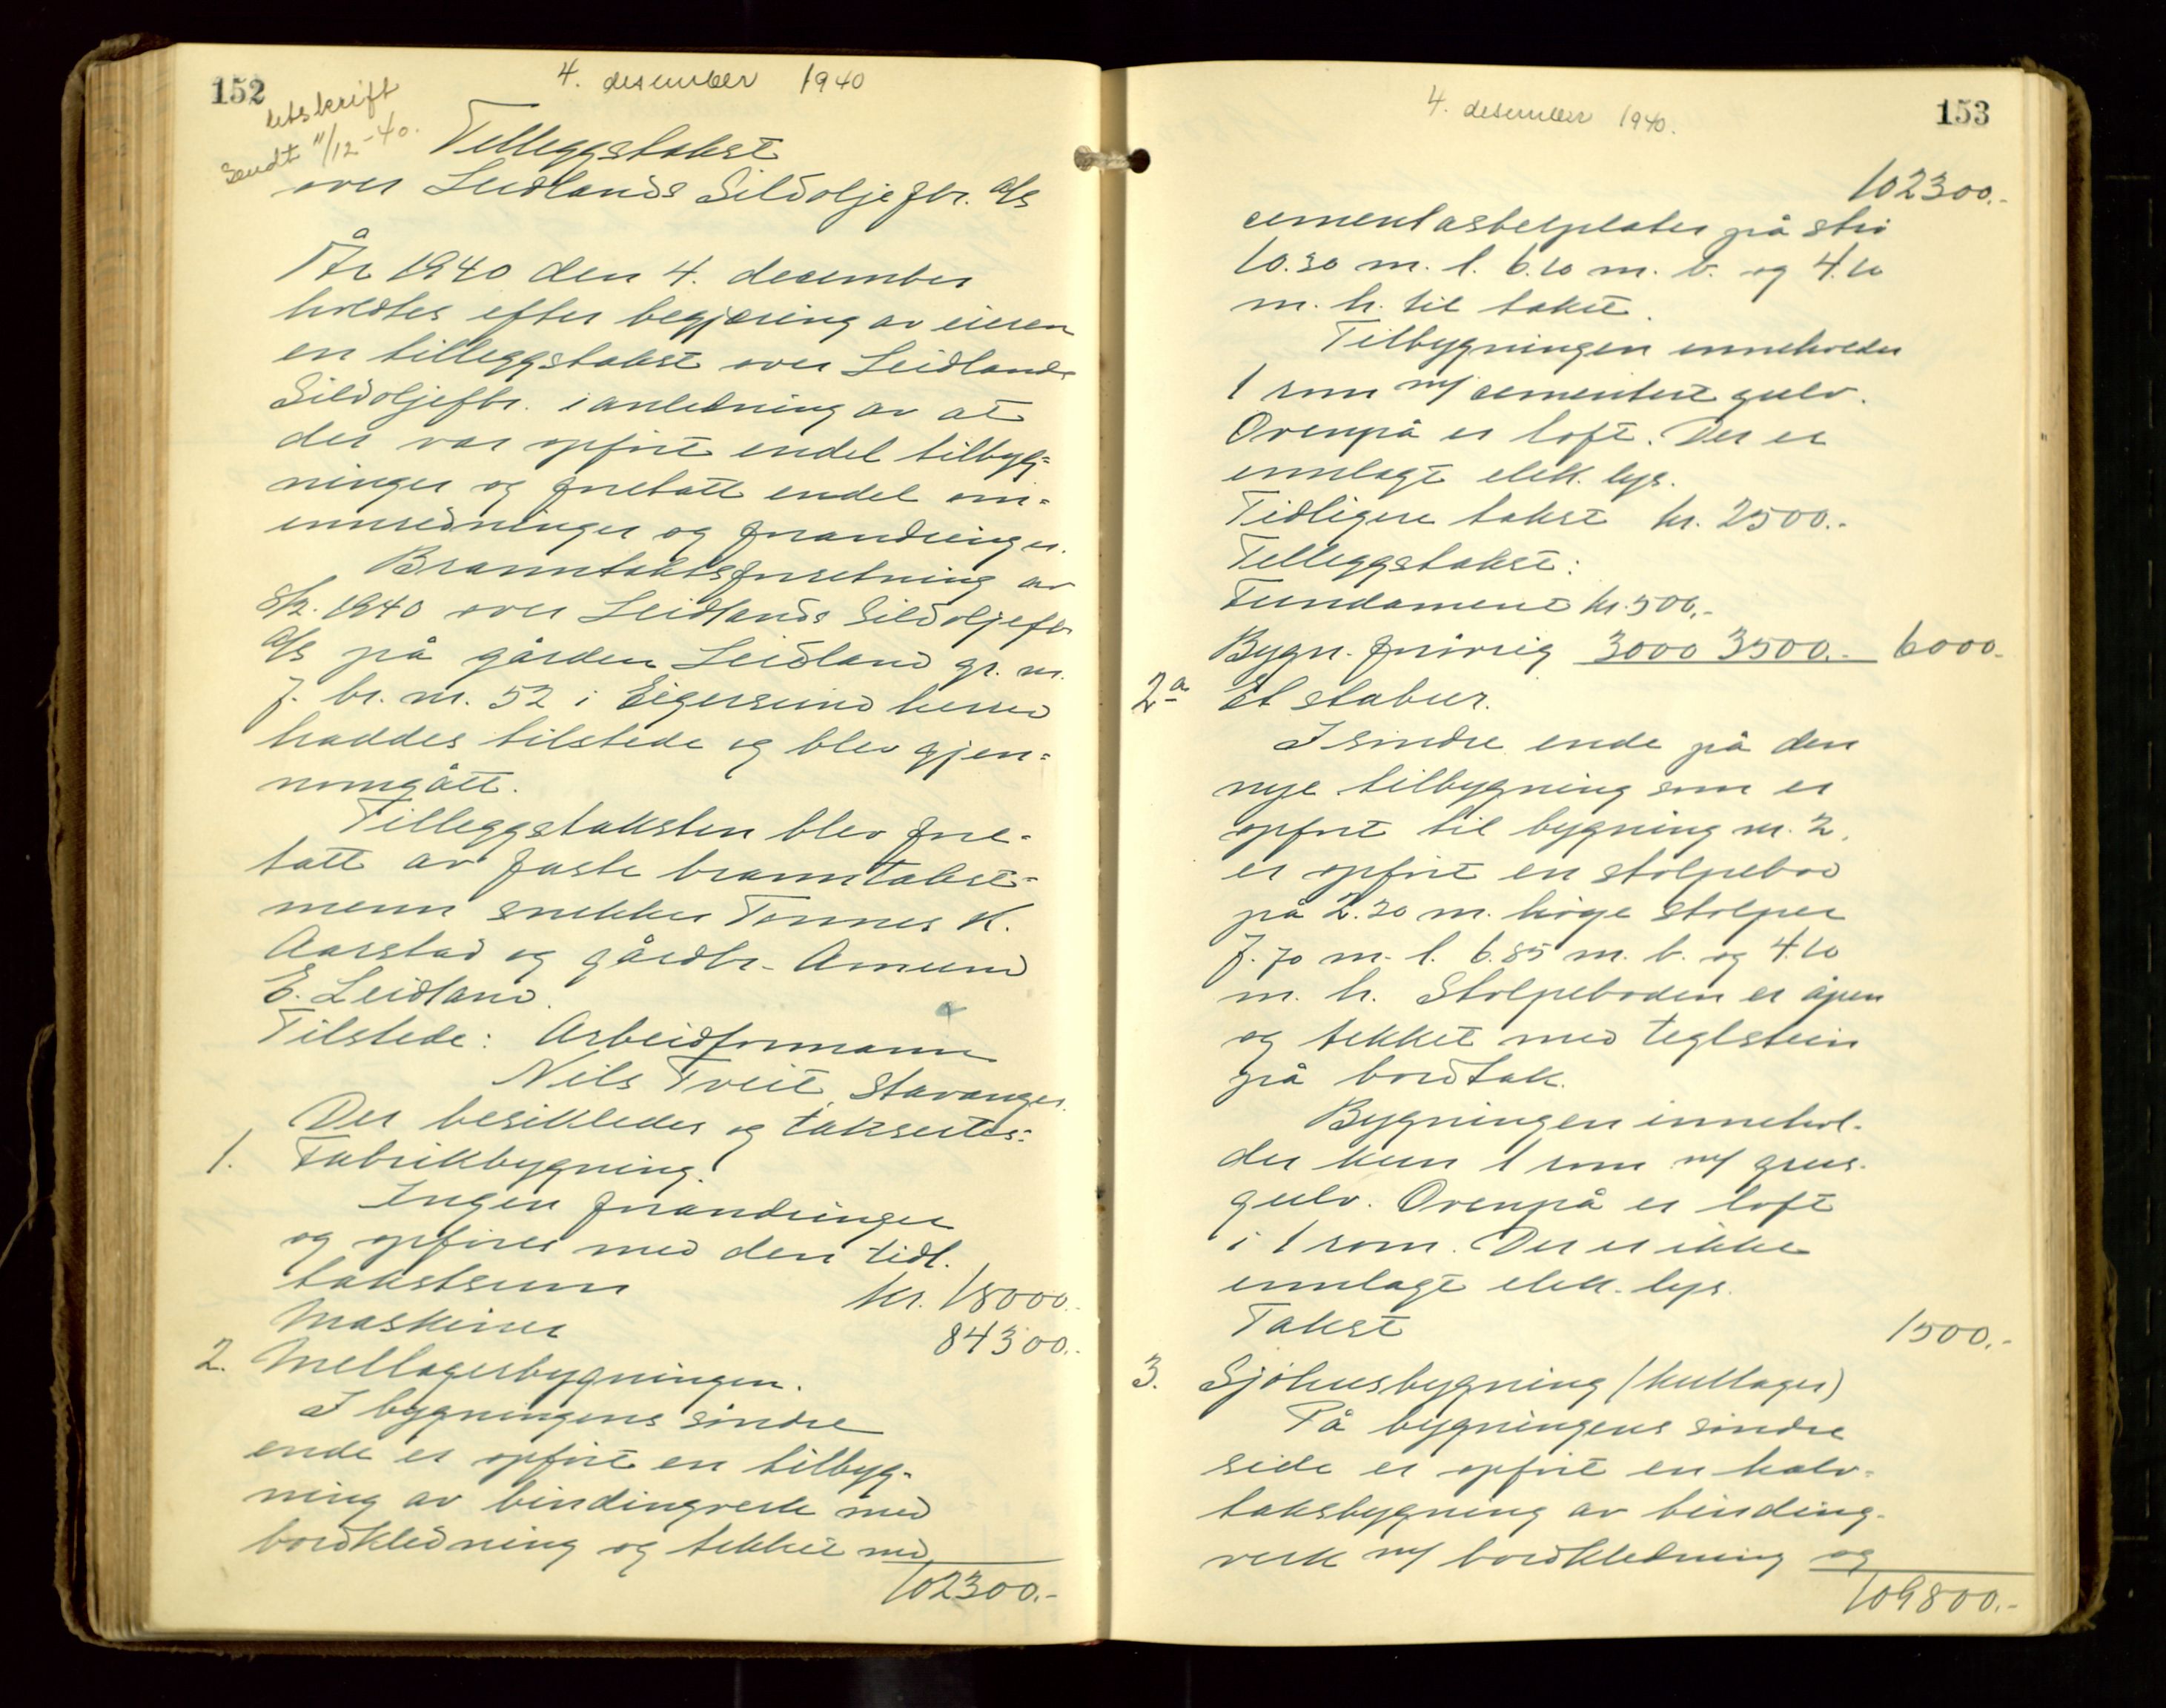 152
4. desember 1940
Utskrift
Sendt 11/12-40.
Tilleggstakst
over Leidlands Sildoljefbr. A/S
År 1940 den 4. desember
holdtes efter begjæring av eieren
en tilleggstakst over Leidlands
Sildoljefbr. i anledning av at
der var opført endel tilbyg=
ninger og foretatt endel om=
innredninger og forandringer.
Branntakstforretning av
1940 over Leidlands Sildoljefbr
A/S på gården Leidland gr. nr.
7. br. nr. 52 i Eigersund herred
haddes tilstede og blev gjen=
nomgått.
Tilleggstaksten blev fore-
tatt av faste branntakst=
menn snekker Tønnes K.
Aarstad og gårdbr. Amund
E. Leidland.
Tilstede: Arbeidformann
Nils Tveit, Stavanger.
Der besiktedes og taksertes:
1. Fabrikbygning.
Ingen forandringer
og opføres med den tidl.
takstsum kr. 18000.-
Maskiner 84300.-
2. Mellagerbygningen.
I bygningens søndre
ende er opført en tilbyg-
ning av bindingverk med
bordkledning og tekket med
102300.-
4. desember 1940.
153
102300.-
cementasbetplater på
10.30 m. l. 6.10 m. b. og 4.10
m. h. til taket.
Tilbygningen inneholder
1 rom m/ cementert gulv.
Ovenpå er loft. Der er
innlagt elek. lys.
Tidligere takst kr. 2500.-
Tilleggstakst:
Fundament kr. 500.-
Bygn. forøvrig 3000 3500.- 6000.-
2a Et stabur.
I søndre ende på den
nye tilbygning som er
opført til bygning nr. 2,
er opført en stolpebod
på 2.20 m. høge stolper
7.70 m. l. 6.85 m. b. og 4.10
m. h. Stolpeboden er åpen
og tekket med teglstein
på bordtak.
Bygningen innehol-
der kun 1 rom m/ grus-
gulv. Ovenpå er loft
i 1 rom. Der er ikke
innlagt elek. lys.
Takst 1500.-
3. Sjøhusbygning (kullager)
På bygningens søndre
side er opført en halv-
taksbygning av binding-
verk m/ bordkledning og
109800.-